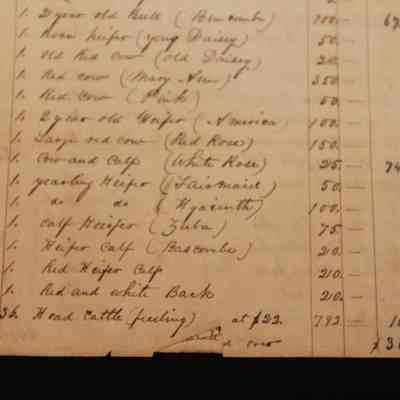 1. 2 year old Bull (Buncombe) 100. — 67
1. Roan heifer (young Daisey) 50. —
1. Old Red Cow (old Daisey) 20. —
1. Red cow (Mary Ann) 350 —
1. Red Cow (Pink) 50. —
1. 2 year old Heifer (America) 100. —
1. Large red cow (Red Rose) 150. —
1. Cow and Calf (White Rose) 25. — 74
1. yearling Heifer (Fairmaid) 50. —
1. do do (Hyacinth) 100. —
1. Calf Heifer (Zuba) 75 —
1. Heifer Calf (Bascombe) 20. —
1. Red Heifer Calf 20. —
1. Red and white Back 20. —
36. Head Cattle (feeling) at $22. 792 —
over